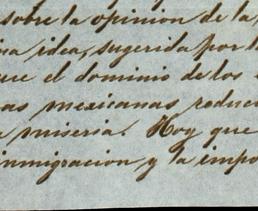 sobre la opinion de la
idea, sugerida por l
el dominio de los
as mexicanas reduc
miseria. Hoy que
inmigracion, y la impo